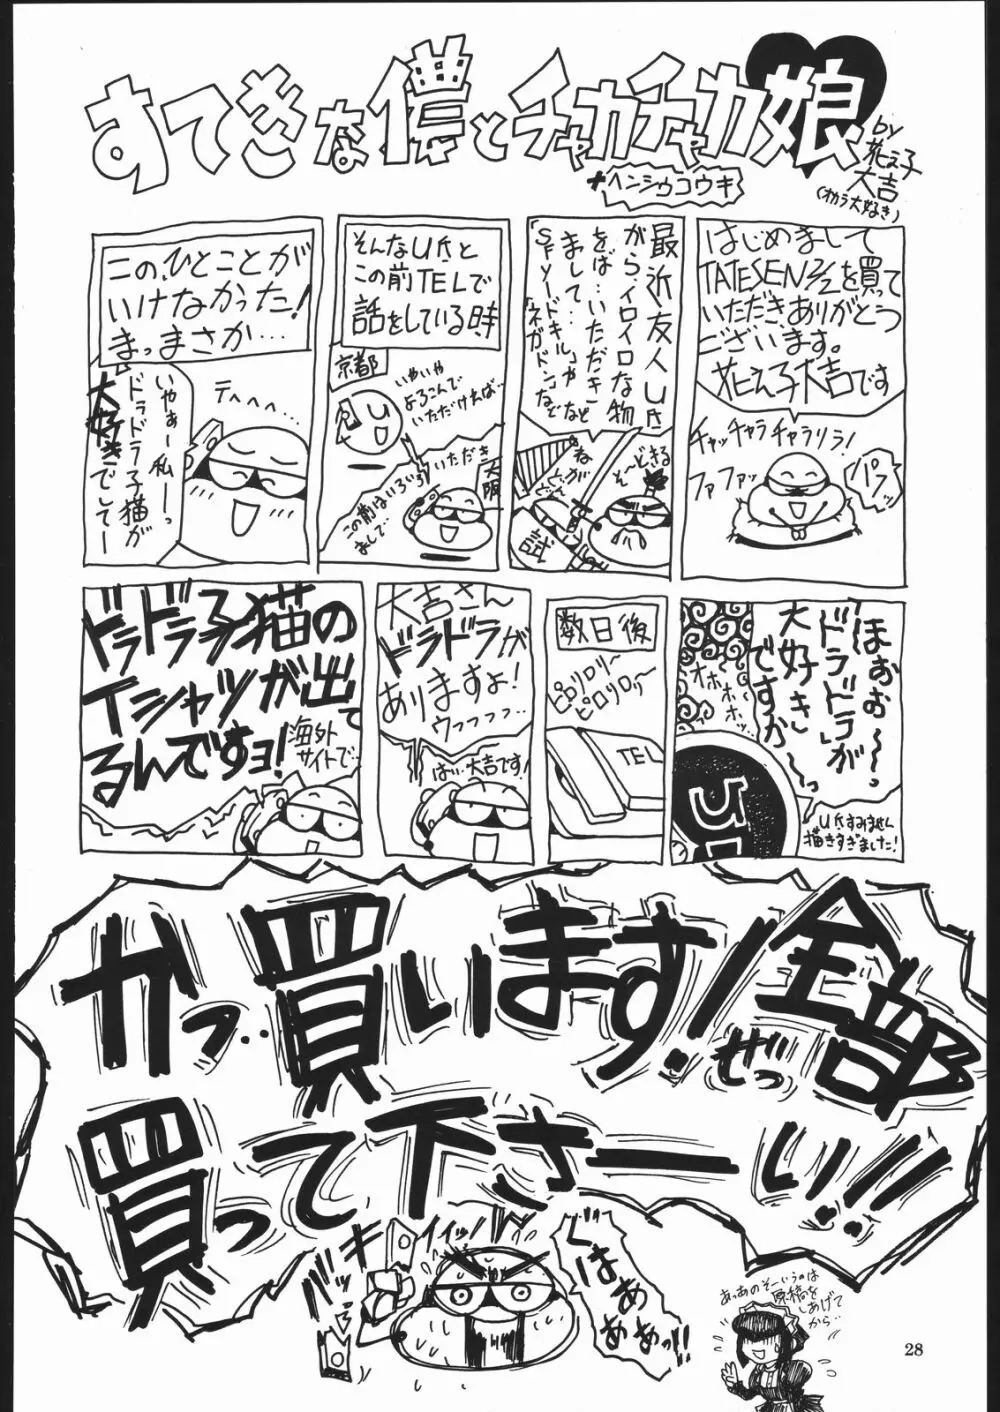 すてきな儂とチャカチャカ娘
+ヘンシウコウキ
by
花え子
大吉
(オカラ大好き)
はじめまして
TATESEN2/2を買って
いただき、ありがとう
ございます。
花え子大吉です
チャッチャラチャラリラ!
ファファッ
パフッ
最近友人U氏
がら、イロイロな物
をば…いただき
まして…
「SFソードキル」や
「ネガドン」などなど
そ〜どきる
ねがどん
試
そんなU氏と
この前TELで
話をしている時、
京都
U
いやいや
よろこんで
いただければ…
大阪
この前はいろいろ
いただき
まして…
この、ひとことが
いけなかった!
まっまさか…
テヘヘヘ…
いやぁー私ーっ
ドラドラ子猫が
大好きでしてー
ほぉぉ〜っ
「ドラドラ」が
大好き
ですか〜っ
オホホホホッ
U氏すみません
描きすぎました!
数日後
ピロリロリ〜
ピロリロリ〜
TEL
大吉さん
ドラドラが
ありますよ!
ウッフッフッフ…
はい、大吉です!
ドラドラ子猫の
Tシャツが出
てるんですョ!
海外
サイトで…
かっ…買います!ぜっ全部
買って下さーい!!
イイッ!
バキ
バッ
ぐはぁぁぁぁっ!!
あっあのそーいうのは
原稿を
しあげて
から…
28